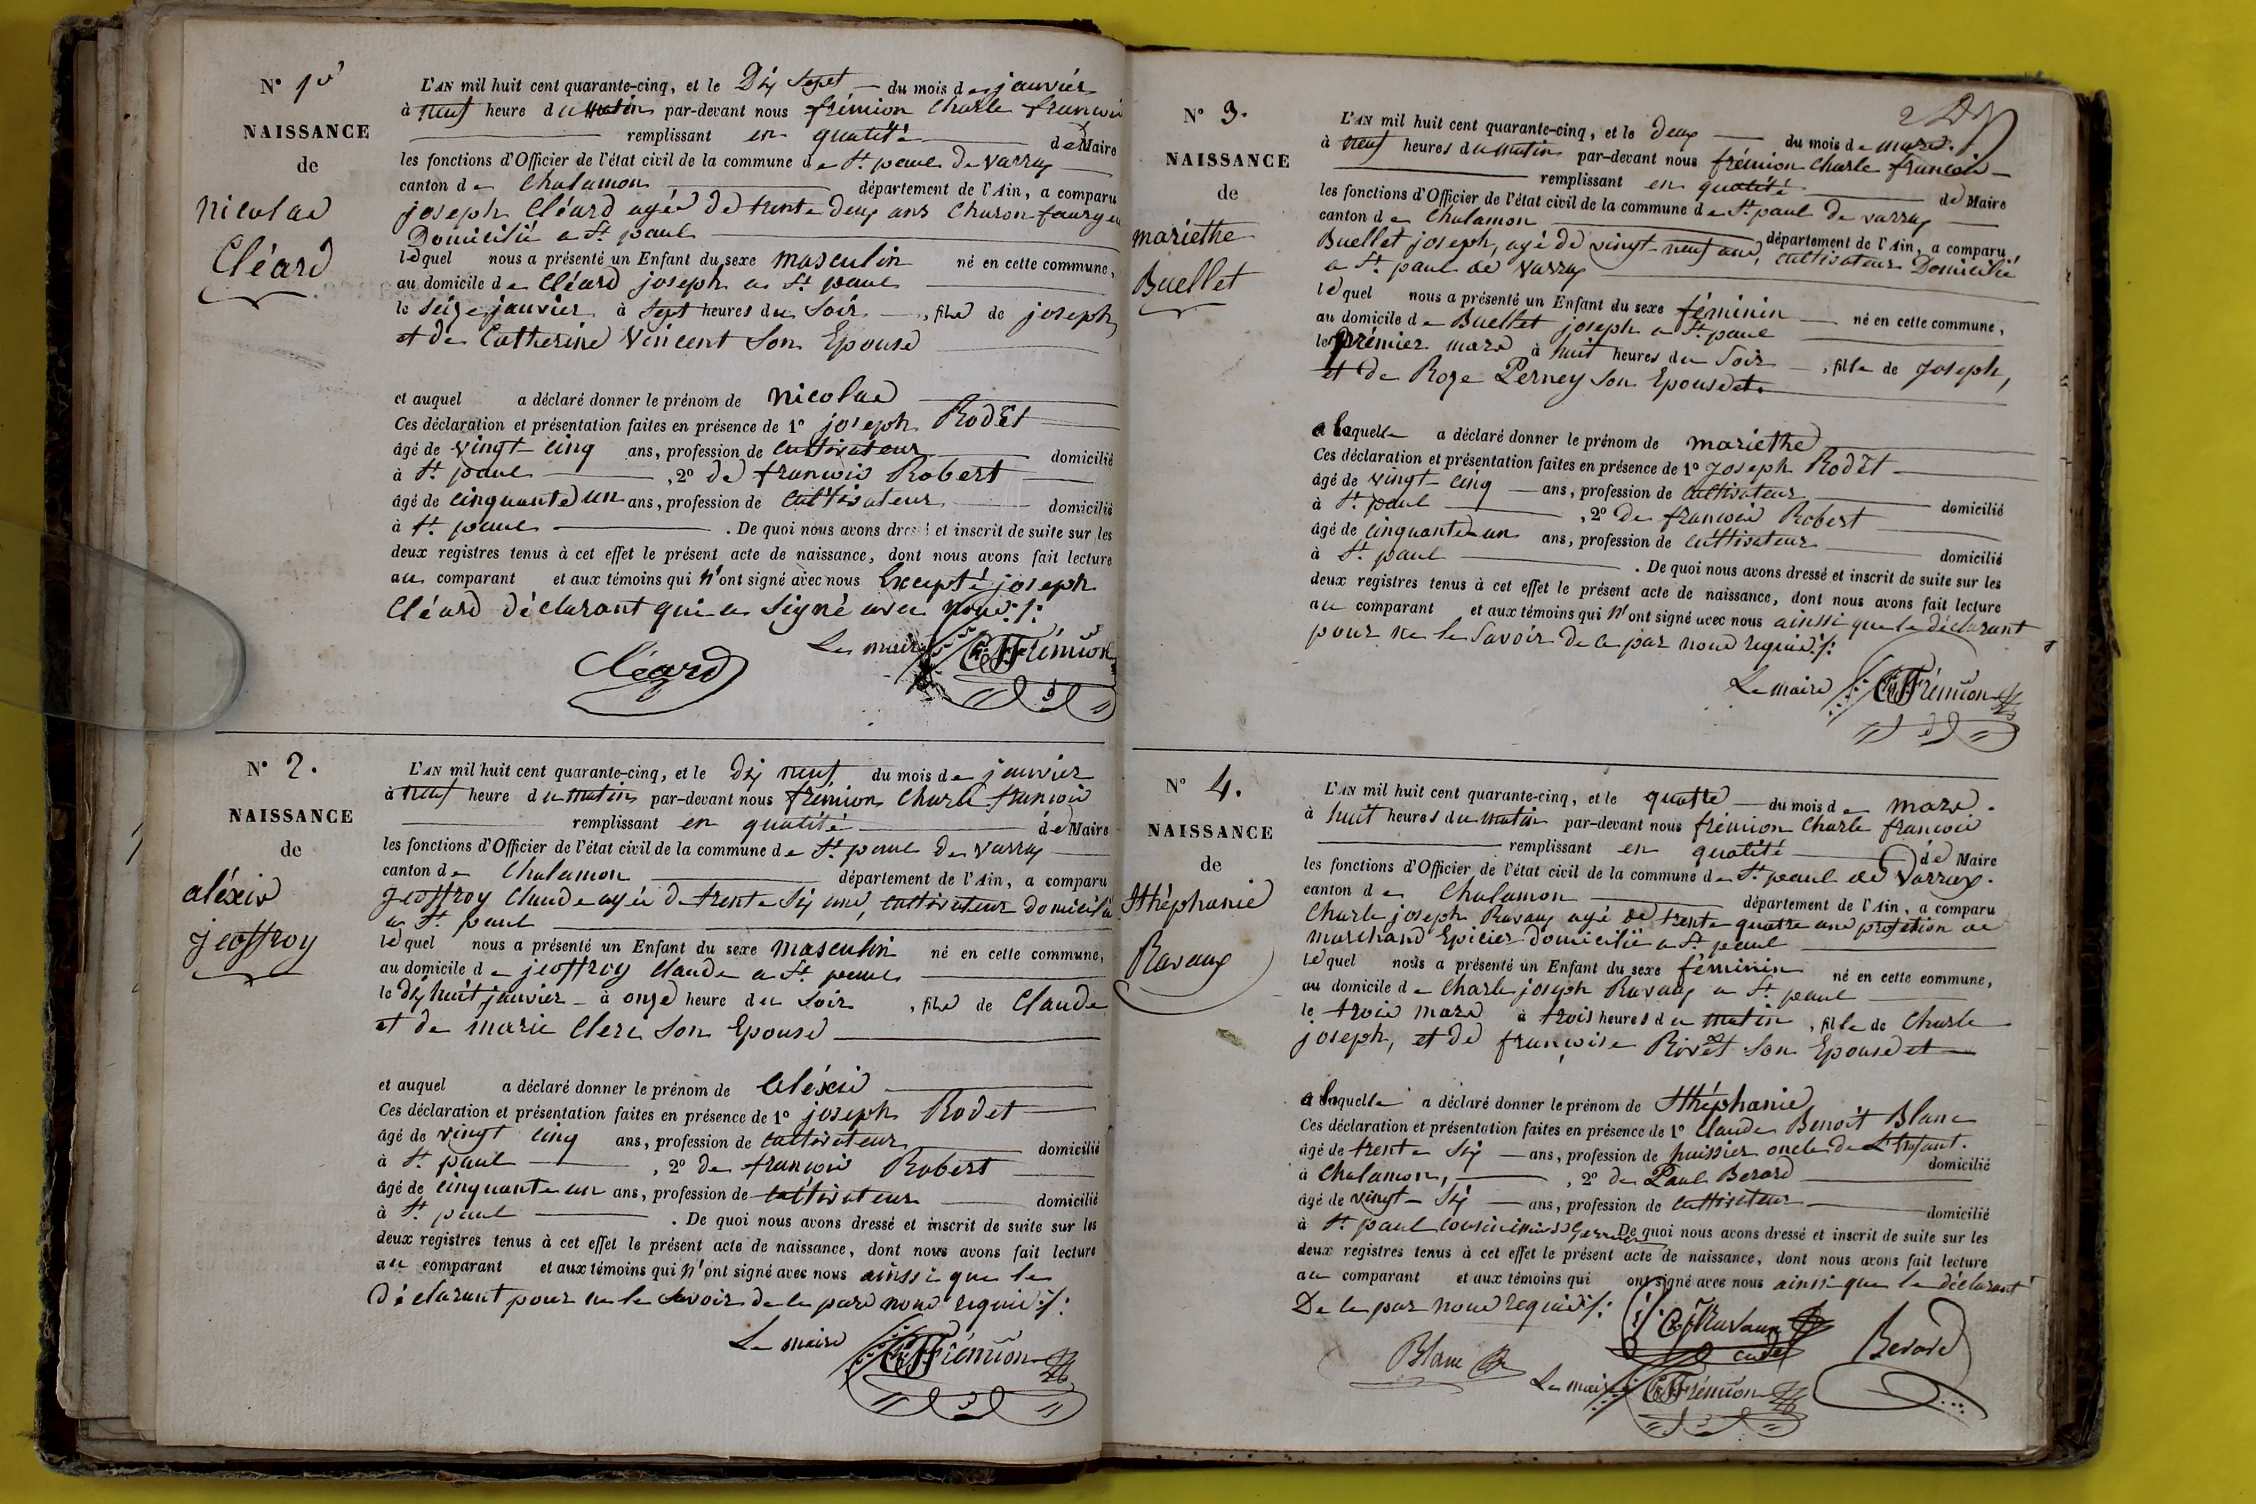 N° 1er
NAISSANCE
de
nicolas
Cléard
L'AN mil huit cent quarante-cinq, et le Dix Sept du mois de janvier
à neuf heure du matin par-devant nous frémion Charle francois
remplissant en qualité de Maire
les fonctions d'Officier de l'état civil de la commune de St. paul de varax
canton de Chalamon département de l'Ain, a comparu
joseph Cléard agée de trente deux ans Charon
Domicilié a St. paul
lequel nous a présenté un Enfant du sexe masculin né en cette commune,
au domicile de Cléard joseph a St. paul
le Seize janvier à Sept heures du Soir, fils de joseph,
et de Catherine Vincent Son Epouse
et auquel a déclaré donner le prénom de nicolas
Ces déclaration et présentation faites en présence de 1° joseph Rodet
âgé de vingt-cinq ans, profession de cultivateur domicilié
à St. paul, 2° de francois Robert
âgé de cinquante un ans, profession de cultivateur domicilié
à St. paul. De quoi nous avons dressé et inscrit de suite sur les
deux registres tenus à cet effet le présent acte de naissance, dont nous avons fait lecture
au comparant et aux témoins qui n'ont signé avec nous Excepté joseph
Cléard déclarant qui a Signé avec nous ./:
Le maire ChFFrémion
Cléard
N° 2.
NAISSANCE
de
aléxis
jeoffroy
L'AN mil huit cent quarante-cinq, et le dix neuf du mois de janvier
à neuf heure du matin par-devant nous frémion Charle francois
remplissant en qualité de Maire
les fonctions d'Officier de l'état civil de la commune de St. paul de varax
canton de Chalamon département de l'Ain, a comparu
jeoffroy Claude agée de trente Six ans, cultivateur domicilié
a St. paul
lequel nous a présenté un Enfant du sexe masculin né en cette commune,
au domicile de jeoffroy Claude a St. paul
le dix huit janvier à onze heure du Soir, fils de Claude
et de marie Clerc Son Epouse
et auquel a déclaré donner le prénom de aléxis
Ces déclaration et présentation faites en présence de 1° joseph Rodet
âgé de vingt cinq ans, profession de cultivateur domicilié
à St. paul, 2° de francois Robert
âgé de cinquante un ans, profession de cultivateur domicilié
à St. paul. De quoi nous avons dressé et inscrit de suite sur les
deux registres tenus à cet effet le présent acte de naissance, dont nous avons fait lecture
au comparant et aux témoins qui n'ont signé avec nous ainssi que le
déclarant pour ne le Savoir de ce par nous requis ./:
Le maire ChFFrémion
N° 3.
NAISSANCE
de
mariethe
Buellet
2
L'AN mil huit cent quarante-cinq, et le deux du mois de mars.
à neuf heures du matin par-devant nous frémion Charle francois
remplissant en qualité de Maire
les fonctions d'Officier de l'état civil de la commune de St. paul de varax
canton de Chalamon département de l'Ain, a comparu
Buellet joseph, agé de vingt-neuf ans, cultivateur Domicilié
a St. paul de varax
lequel nous a présenté un Enfant du sexe féminin né en cette commune,
au domicile de Buellet joseph a St. paul
le prémier mars à huit heures du Soir, fille de joseph,
et de Roze Perney Son Epouse et
a laquelle a déclaré donner le prénom de mariethe
Ces déclaration et présentation faites en présence de 1° joseph Rodet
âgé de vingt-cinq ans, profession de cultivateur domicilié
à St. paul, 2° de francois Robert
âgé de cinquante un ans, profession de cultivateur domicilié
à St. paul. De quoi nous avons dressé et inscrit de suite sur les
deux registres tenus à cet effet le présent acte de naissance, dont nous avons fait lecture
au comparant et aux témoins qui n'ont signé avec nous ainssi que le déclarant
pour ne le Savoir de ce par nous requis ./:
Le maire ChFFrémion
N° 4.
NAISSANCE
de
Sthéphanie
Ravaux
L'AN mil huit cent quarante-cinq, et le quatre du mois de mars.
à huit heures du matin par-devant nous frémion Charle francois
remplissant en qualité de Maire
les fonctions d'Officier de l'état civil de la commune de St. paul de Varax.
canton de Chalamon département de l'Ain, a comparu
Charle joseph Ravaux agé de trente quatre ans profetion de
marchand Epicier domicilié a St. paul
lequel nous a présenté un Enfant du sexe féminin né en cette commune,
au domicile de Charle joseph Ravaux a St. paul
le trois mars à trois heures du matin, fille de Charle
joseph, et de françoise Rivet Son Epouse et
a laquelle a déclaré donner le prénom de Sthéphanie
Ces déclaration et présentation faites en présence de 1° Claude Benoit Blanc
âgé de trente Six ans, profession de huissier oncle de L'Enfant. domicilié
à Chalamon, 2° de Paul Berard
âgé de vingt-Six ans, profession de cultivateur domicilié
à St. paul cousin De quoi nous avons dressé et inscrit de suite sur les
deux registres tenus à cet effet le présent acte de naissance, dont nous avons fait lecture
au comparant et aux témoins qui ont signé avec nous ainssi que le déclarant
De ce par nous requis ./:
ChjRavaux
cadet
Blanc
Berard
Le maire ChFFrémion